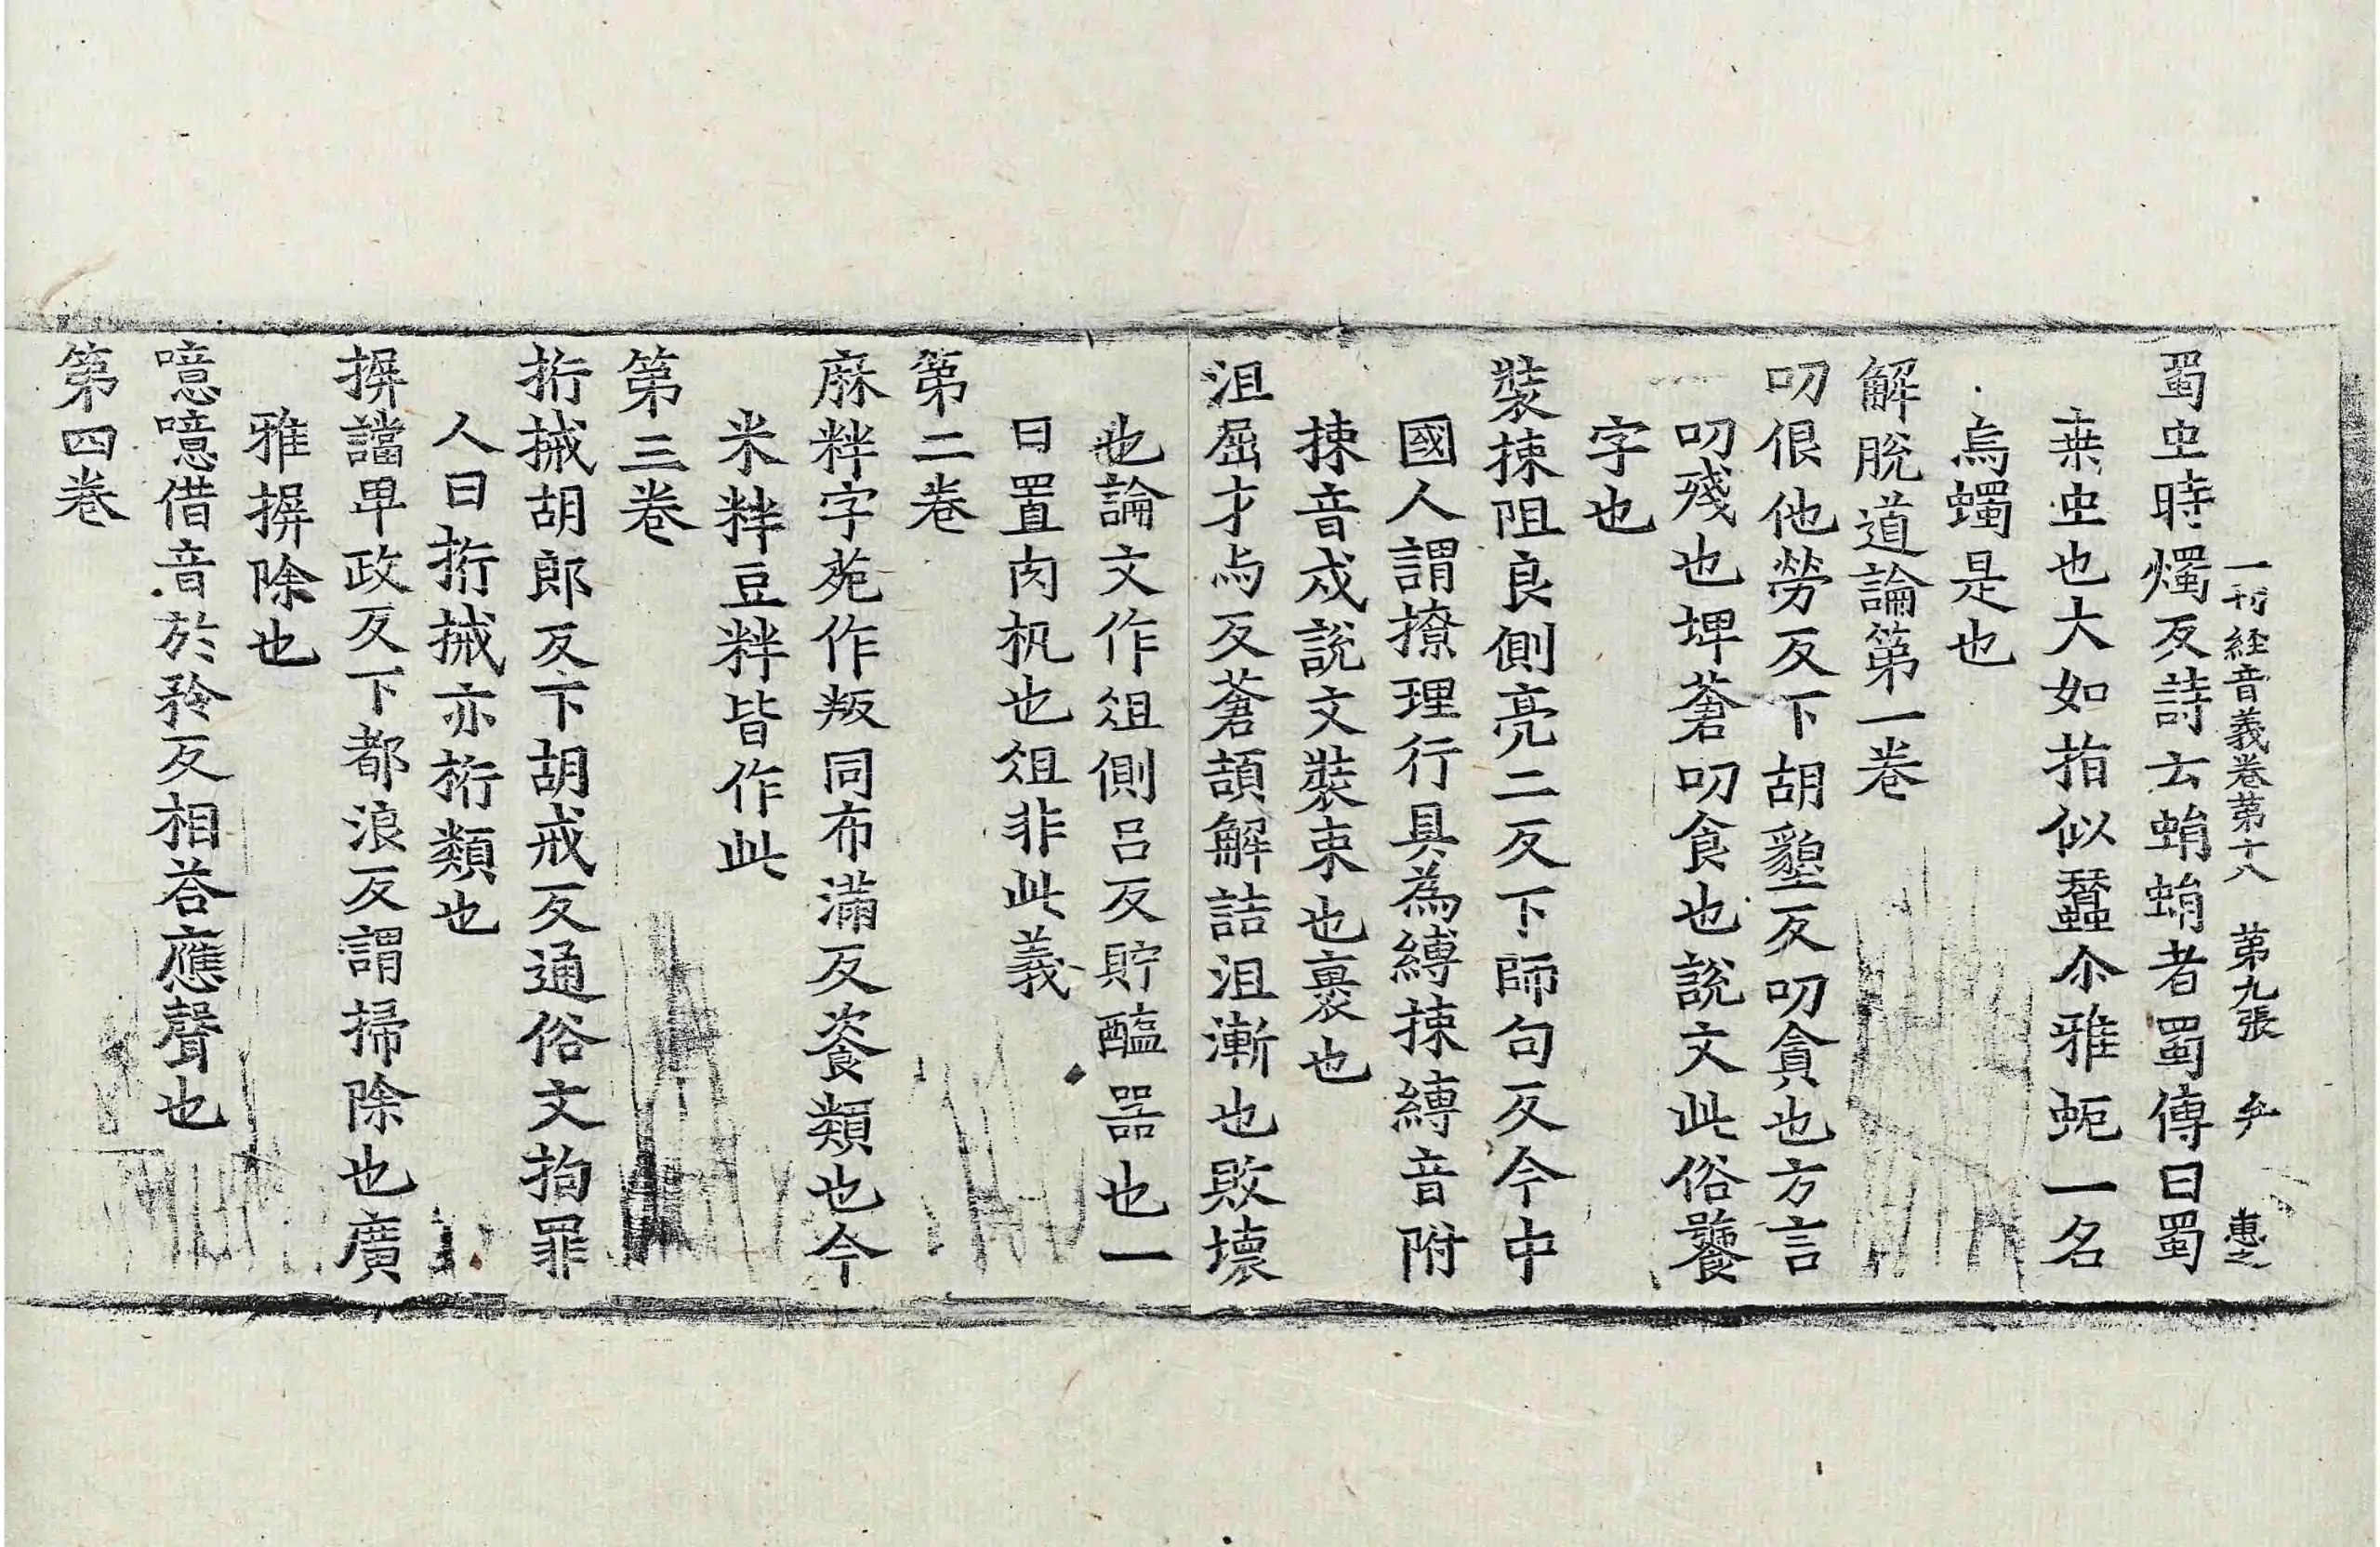 一切経音義卷第十八 第九張 惠之
蜀虫時燭反詩云蜎蜎者蜀傳曰蜀
桒虫也大如指似蠶尒雅蚅一名
烏蠋是也
解脫道論第一卷
叨佷他勞反下胡墾反叨貪也方言
叨殘也埤蒼叨食也說文此俗饕
字也
裝揀阻良側亮二反下師句反今中
國人謂撩理行具為縛揀縛音附
揀音戍說文裝束也裹也
沮屈才与反蒼頡解詁沮漸也敗壞
也論文作俎側呂反貯醢器也一
曰置肉机也俎非此義
第二卷
麻粋字苑作粄同布滿反餈類也今
米粋豆粋皆作此
第三卷
拼械胡郎反下胡戒反通俗文拘罪
人曰拼械亦桁類也
摒譡卑政反下都浪反謂掃除也廣
雅摒除也
噫噫借音於矜反相荅應聲也
第四卷